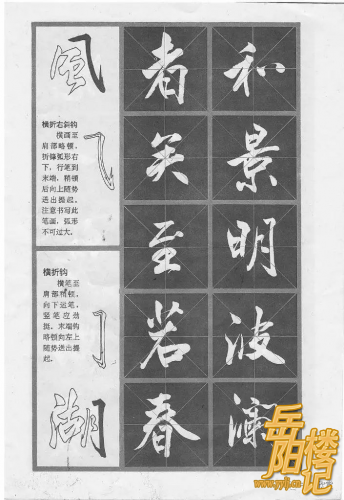 風
横折右斜钩
横画至
肩部略顿,
折修弧形右
下,行笔到
末端,稍顿
后向上随势
送出提起。
注意书写此
笔画,弧形
不可过大。
横折钩
横笔至
肩部稍顿,
向下运笔,
竖笔应劲
挺。末端钩
略顿向左上
随势送出提
起。
湖
者矣至若春
和景明波澜
岳阳楼记